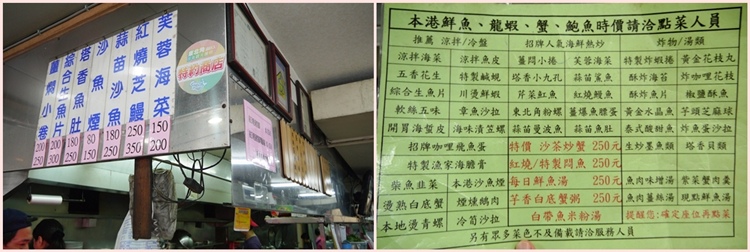 芙蓉海菜 150 200
紅燒芝鰻 250 350
蒜苗沙魚 180 250
沙魚煙 80 150
塔香魚肚 180 250
綜合生魚片 200 300
燜小卷 200 250
特約商店
本港鮮魚、龍蝦、蟹、鮑魚時價請洽點菜人員
推薦 涼拌/冷盤 招牌人氣海鮮熱炒 炸物/湯類
涼拌海菜 涼拌魚皮 薑悶小捲 芙蓉海菜 特製炸蝦捲 黃金花枝丸
五香花生 特製鹹蜆 塔香小丸孔 蒜苗鯊魚 酥炸海苔 炸咖哩花枝
綜合生魚片 川燙鮮蚵 芹菜紅魚 紅燒鰻魚 酥炸魚片 椒鹽酥魚
軟絲五味 章魚沙拉 東北角粉螺 薑爆魚膘蛋 黃金水晶魚 芋頭芝麻球
開胃海蜇皮 海味漬笠螺 蒜苗曼波魚 蒜苗魚肚 泰式酸甜魚 炸魚蛋沙拉
招牌咖哩飛魚蛋 特價 沙茶炒蟹 250元 生炒墨魚類 塔香貝類
特製漁家海膽膏 紅燒/特製悶魚 250元
柴魚韭菜 本港沙魚煙 每日鮮魚湯 250元 魚肉味增湯 紫菜蟹肉羹
燙熟白底蟹 煙燻鷸肉 芋香白底蟹粥 250元 魚肉薑絲湯 現點鮮魚湯
本地燙青螺 冷筍沙拉 白帶魚米粉湯 提醒您:確定座位再點菜
另有眾多菜色不及備載請洽服務人員